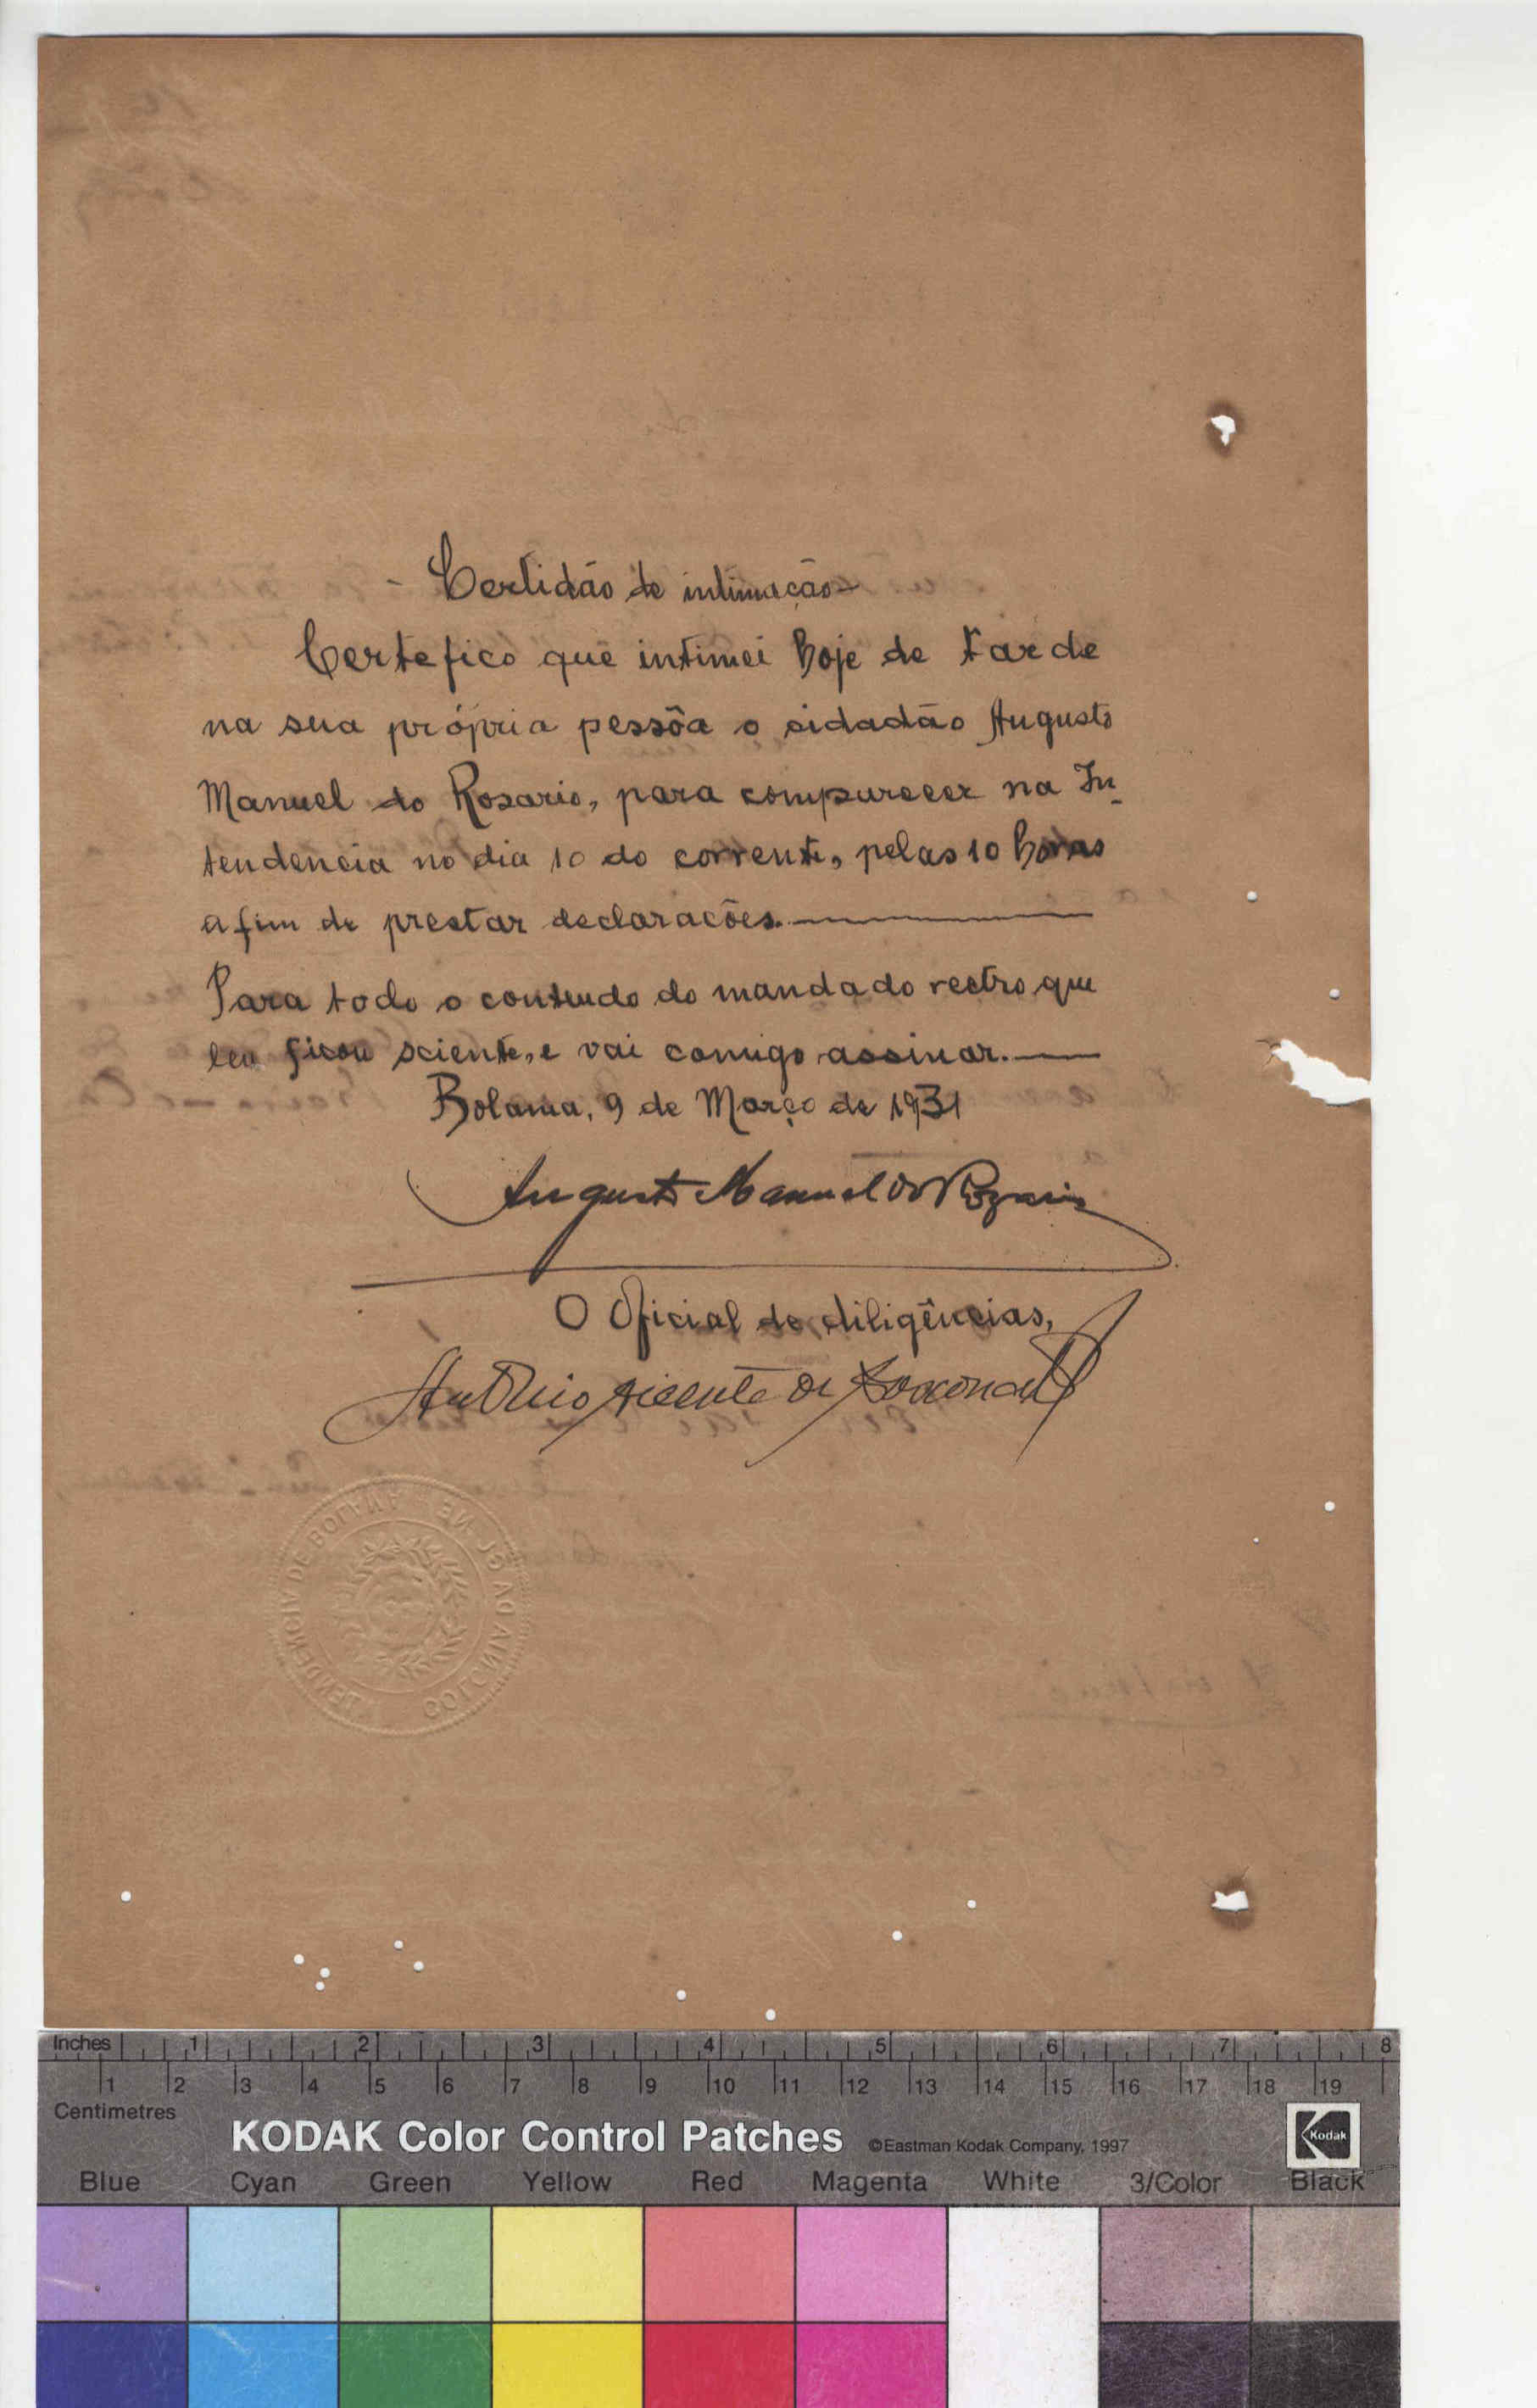 - Certidão de intimação -
Certefico que intimei hoje de tarde
na sua própria pessôa o sidadão Augusto
Manuel do Rosario, para compurecer na In-
tendencia no dia 10 do corrente, pelas 10 horas
a fim de prestar declarações.
Para todo o conteudo do mandado rectro que
leu ficou sciente, e vai comigo assinar.
Bolama, 9 de Março de 1931
Augusto Manuel do Rozario
O Oficial de diligências,
António Vicente de
TENDENCIA DE BOLAMA
COLONIA DA GUINÉ
Inches 1 2 3 4 5 6 7 8
1 2 3 4 5 6 7 8 9 10 11 12 13 14 15 16 17 18 19
Centimetres
KODAK Color Control Patches ©Eastman Kodak Company, 1997 Kodak
Blue Cyan Green Yellow Red Magenta White 3/Color Black